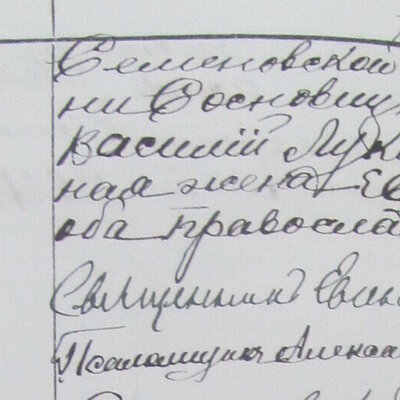 Семеновской
ни Сосновиц
Василій Лук
ная жена Ев
оба правосла
Священникъ Евген
Псаломщикъ Алекса